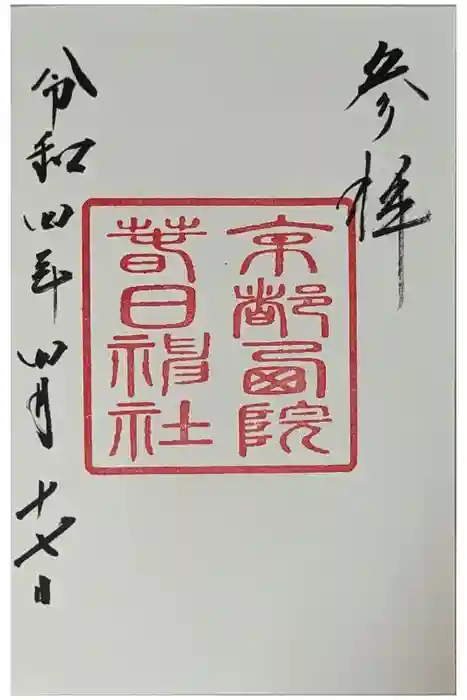 参拝
京都西院
春日神社
令和四年四月十七日